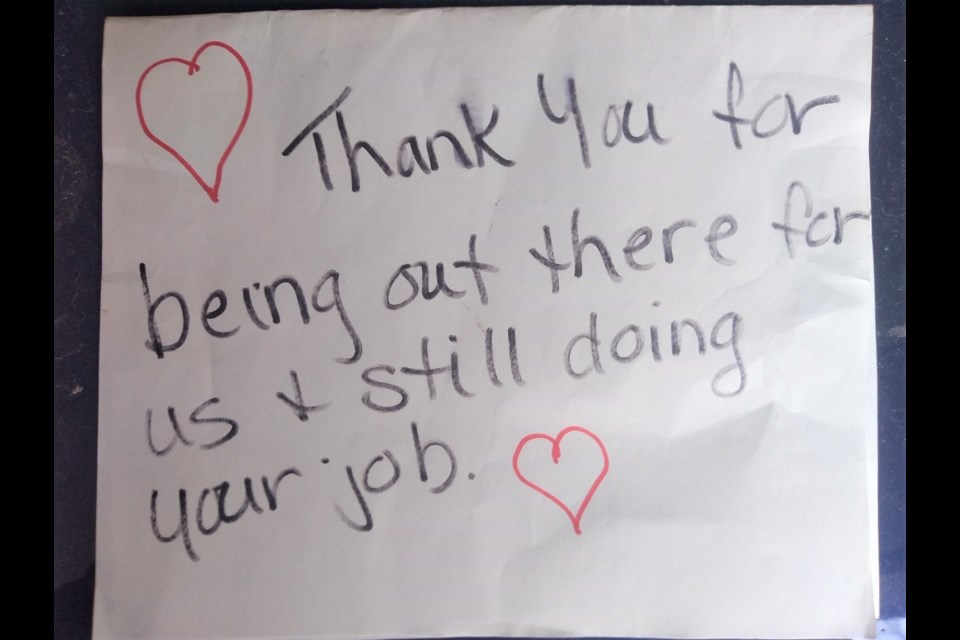 Thank You for
being out there for
us & still doing
your job.